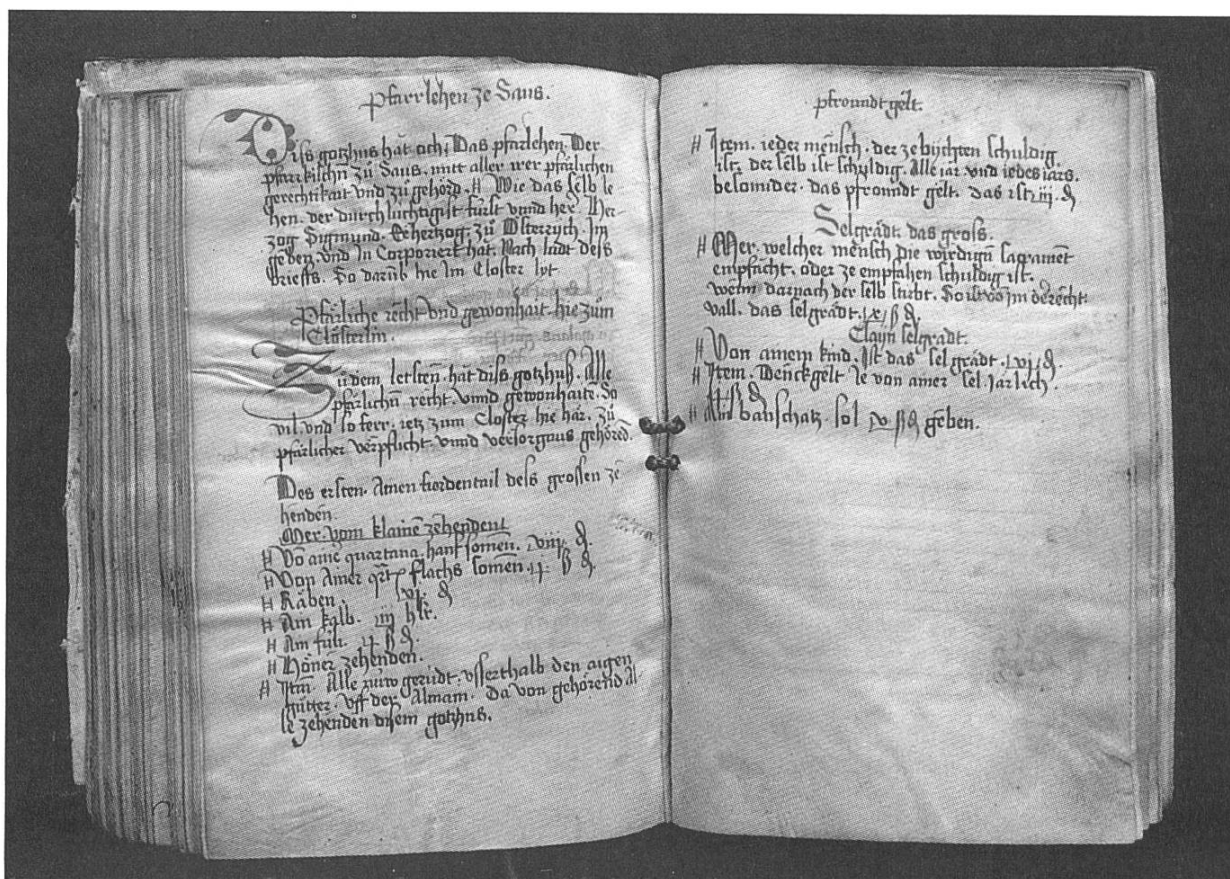 Pfarrlehen ze Saus.
Diss gotzhus hat och. Das pfarlehen. Der
pfarrkilchn zů Saus. mitt aller irer pfarlichen
gerechtikait vnd zů gehörd. Wie das selb le
hen. der durchlüchtigist fürst vnnd her. Her-
zog Sigmund. Ertzhertzog. zů Österrych. Im
geben vnd In Corporiert hat. Nach ludt dess
brieffs. So darüb hie Im Closter lyt
Pfarliche recht vnd gewonhait. hie zům
Clösterlin.
Zů dem letsten. hat diss gotzhuß. Alle
pfarlichn recht. vnnd gewonhaite. So
vil vnd so ferr. ietz zum Closter hie här. zů
pfarlicher verpflicht. vnnd versorgnus gehöred.
Des ersten. Ainen fiordentail dess grossen ze
henden.
Mer. vom klaine zehendent
Vō aine quartana. hanf somen. viiij. ₰.
Von Ainer qrt flachs somen ij. ß ₰
Räben. vj. ₰
Ain kalb. iiij hlr.
Ain füli. ij ß ₰.
Höner zehenden.
Itm. Alle nüw gerüdt. vsserthalb den aigen
gütter. vff der Almain. da von gehörend al
le zehenden disem gotzhus.
pfrounndt gelt.
Item. ieder mensch. der ze bychten schuldig
ist. der selb ist schuldig. Alle iar vnd iedes iars.
besonnder. das pfrounndt gelt. das ist iij. ₰
Selgrädt. das gross.
Mer. welcher mensch die wirdign sacramēt
empfücht. oder ze empfahen schuldig ist.
wenn darnach der selb stirbt. So ist vō im der recht
vall. das selgrädt. ix ß ₰.
Clayn selgrädt.
Von ainem kind. Ist das sel grädt. ₰
Item. Denckgelt ie von ainer sel Järlich.
ij ß ₰
Ain banschatz sol v ß ₰ geben.